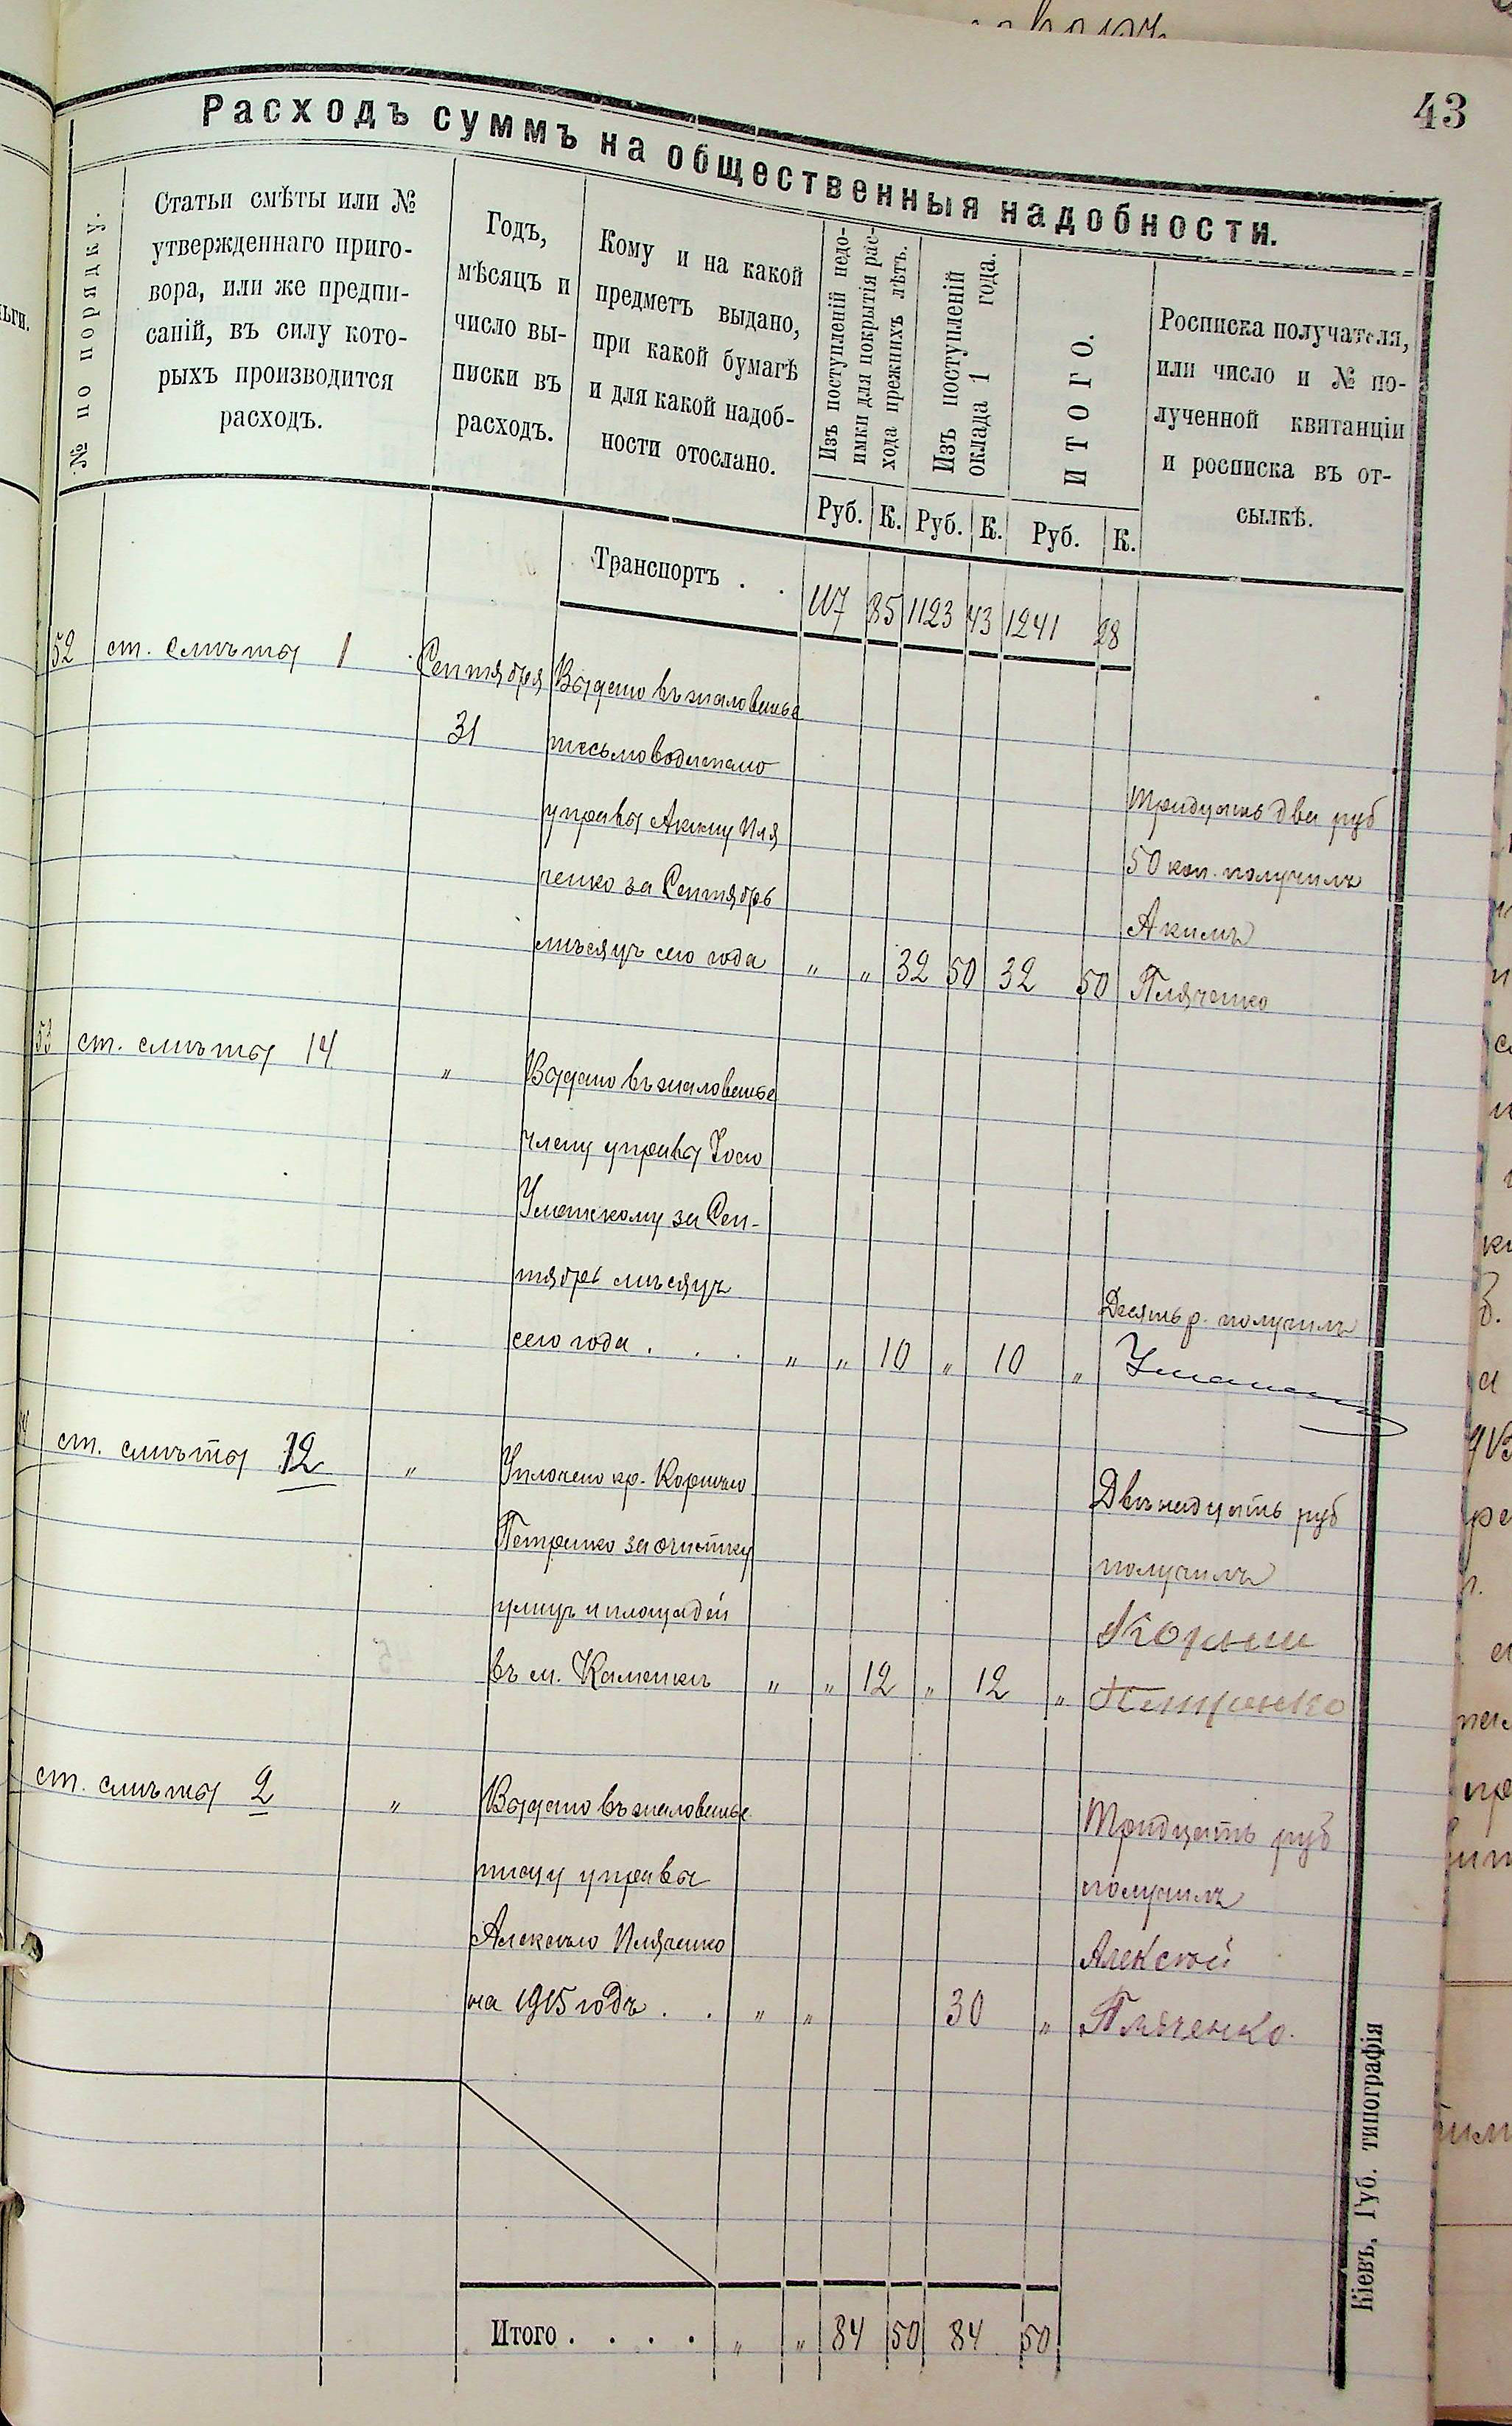 43
Расходъ суммъ на общественныя надобности.
№ по порядку.
Статьи смѣты или №
утвержденнаго приго-
вора, или же предпи-
саній, въ силу кото-
рыхъ производится
расходъ.
Годъ,
мѣсяцъ и
число вы-
писки въ
расходъ.
Кому и на какой
предметъ выдано,
при какой бумагѣ
и для какой надоб-
ности отослано.
Изъ поступленій недо-
имки для покрытія рас-
хода прежнихъ лѣтъ.
Изъ поступленій
оклада 1 года.
ИТОГО.
Росписка получателя,
или число и № по-
лученной квитанціи
и росписка въ от-
сылкѣ.
Руб. К. Руб. К. Руб. К.
Транспортъ . . 117 85 1123 43 1241 28
52 ст. смѣты 1 Сентября Выдано въ жалованье
31 письмоводителю
управы Акиму Пля
ченко за Сентябрь
мѣсяцъ сего года " " 32 50 32 50
Тридцать два руб
50 коп. получилъ
Акимъ
Пляченко
53 ст. смѣты 14 " Выдано въ жалованье
члену управы
Уманскому за Сен-
тябрь мѣсяцъ
сего года . . . " " 10 " 10 "
Десять р. получилъ
ст. смѣты 12 " Уплочено кр. Корнѣю
Петренко за очистку
улицъ и площадей
въ м. Каменкѣ " " 12 " 12 "
Двѣнадцать руб
получилъ
Корнии
Петренко
ст. смѣты 2 " Выдано въ жалованье
писцу управы
Алексѣю Пляченко
на 1915 годъ . . " " 30 "
Тридцать руб
получилъ
Алексѣй
Пляченко.
Итого . . . . " " 84 50 84 50
Кіевъ, Губ. типографія